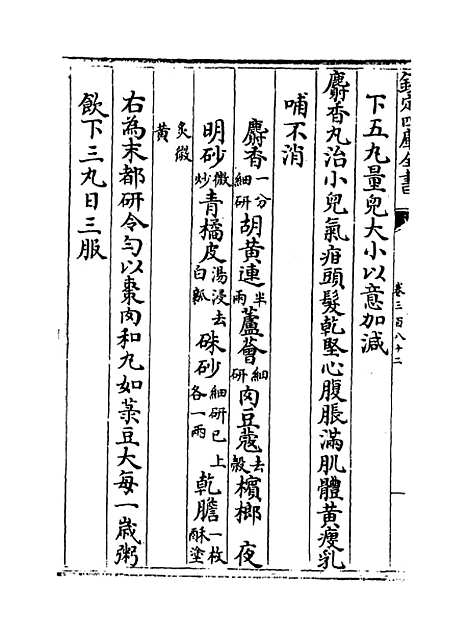 欽定四庫全書
卷三百八十二
下五丸量兒大小以意加減
麝香丸治小兒氣疳頭髮乾堅心腹脹滿肌體黄瘦乳
哺不消
麝香一分細研胡黄連半兩蘆薈細研肉豆蔻去殼檳榔夜
明砂微炒青橘皮湯浸去白瓤硃砂細研已上各一兩乾膽一枚酥塗
炙微黄
右為末都研令勻以棗肉和丸如菉豆大每一歲粥
飲下三丸日三服